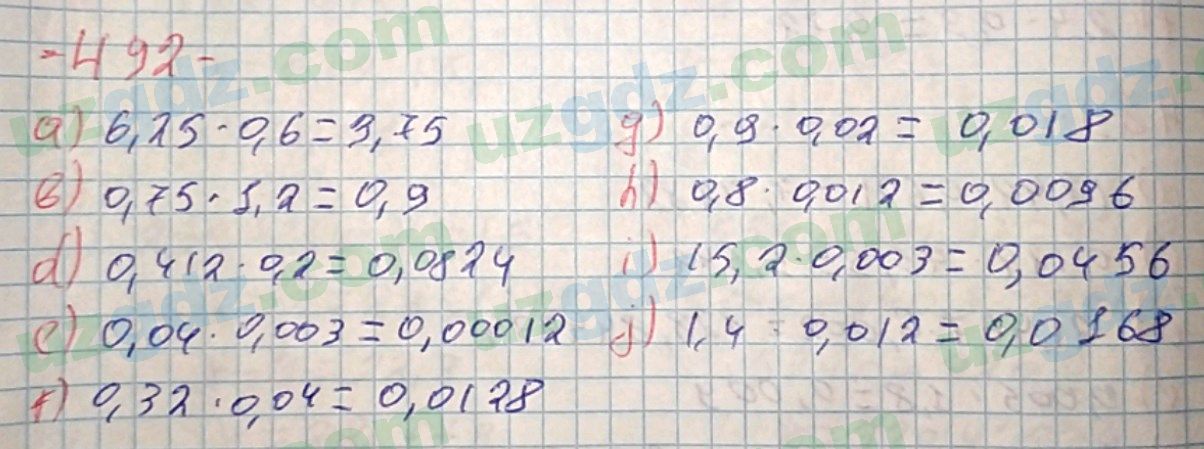 -492-
a) 6,25 · 0,6 = 3,75
b) 0,75 · 1,2 = 0,9
d) 0,412 · 0,2 = 0,0824
e) 0,04 · 0,003 = 0,00012
f) 0,32 · 0,04 = 0,0128
g) 0,9 · 0,02 = 0,018
h) 0,8 · 0,012 = 0,0096
i) 15,2 · 0,003 = 0,0456
j) 1,4 · 0,012 = 0,0168
uzgdz.com